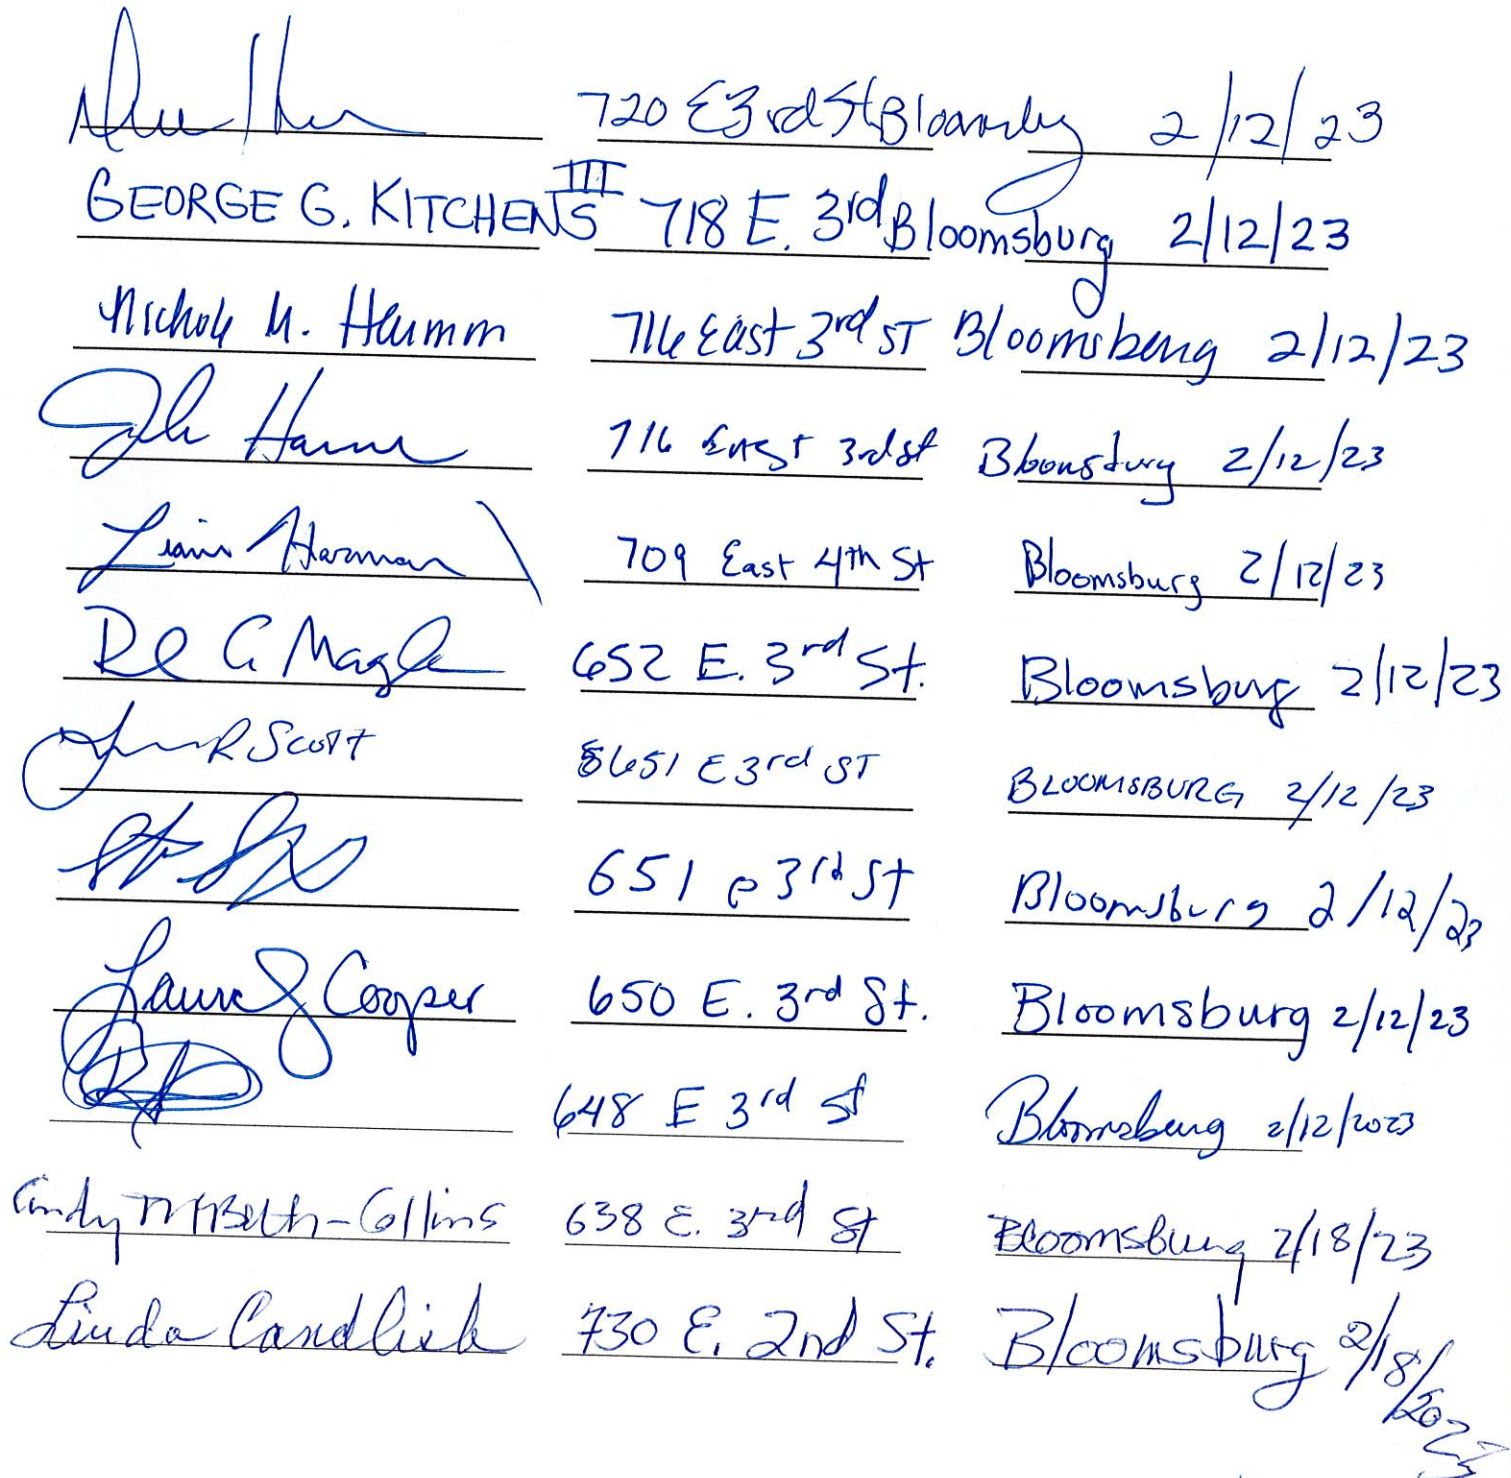 720 E 3rd St 2/12/23
GEORGE G. KITCHENS III 718 E. 3rd Bloomsburg 2/12/23
M. Hamm 716 East 3rd ST Bloomsburg 2/12/23
716 East 3rd St Bloomsburg 2/12/23
Harman 709 East 4th St Bloomsburg 2/12/23
652 E. 3rd St. Bloomsburg 2/12/23
R Scott 651 E 3rd ST BLOOMSBURG 2/12/23
651 e 3rd St Bloomsburg 2/12/23
Cooper 650 E. 3rd St. Bloomsburg 2/12/23
648 E 3rd St Bloomsburg 2/12/2023
Cindy McBeth-Collins 638 E. 3rd St Bloomsburg 2/18/23
Linda Candlish 730 E. 2nd St. Bloomsburg 2/18/2023